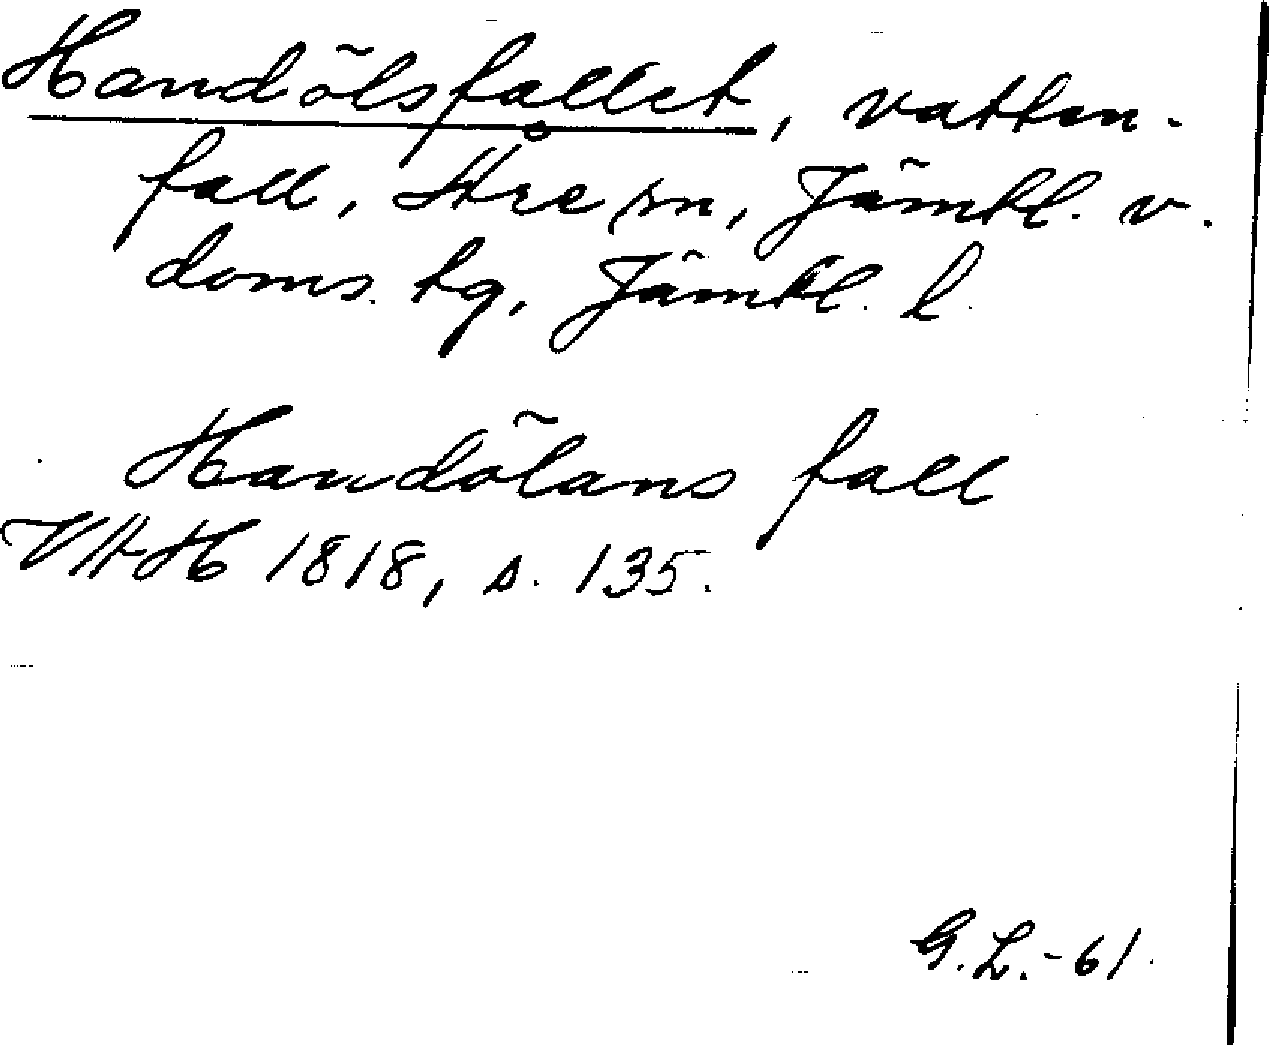 Handölsfallet, vatten-
fall, Åre sn, Jämtl. v.
doms. tg, Jämtl. l.
Handölans fall
VAH 1818, s. 135.
G.L.-61.